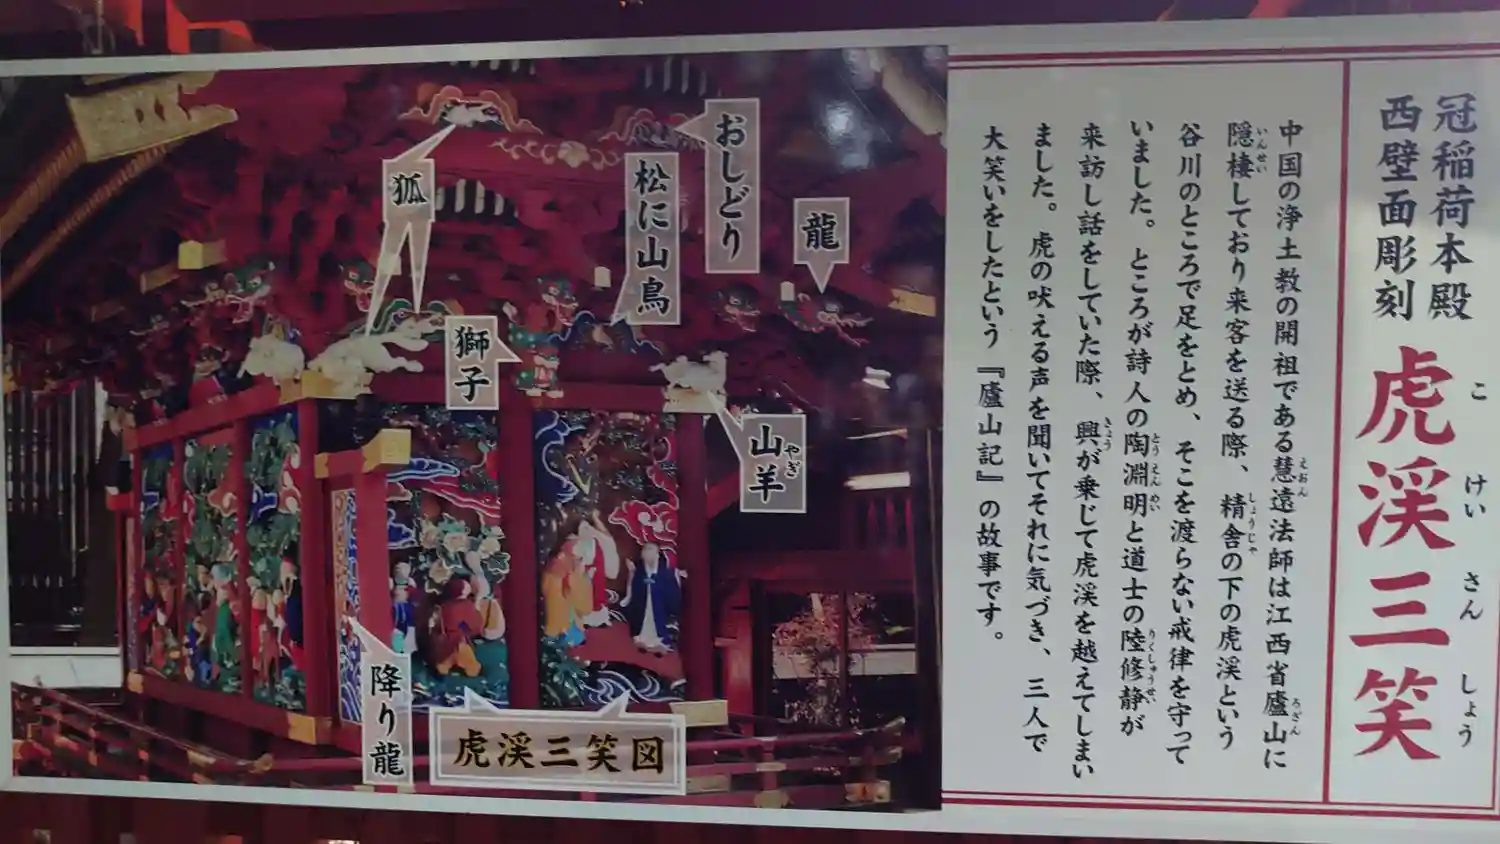 冠稲荷本殿
西壁面彫刻
虎渓三笑
こけいさんしょう
中国の浄土教の開祖である慧遠法師は江西省廬山に
えおん
ろざん
隠棲しており来客を送る際、精舎の下の虎渓という
いんせい
しょうじゃ
谷川のところで足をとめ、そこを渡らない戒律を守って
いました。ところが詩人の陶淵明と道士の陸修静が
とうえんめい
りくしゅうせい
来訪し話をしていた際、興が乗じて虎渓を越えてしまい
きょう
ました。虎の吠える声を聞いてそれに気づき、三人で
大笑いをしたという『廬山記』の故事です。
おしどり
龍
松に山鳥
狐
獅子
山羊
やぎ
降り龍
虎渓三笑図